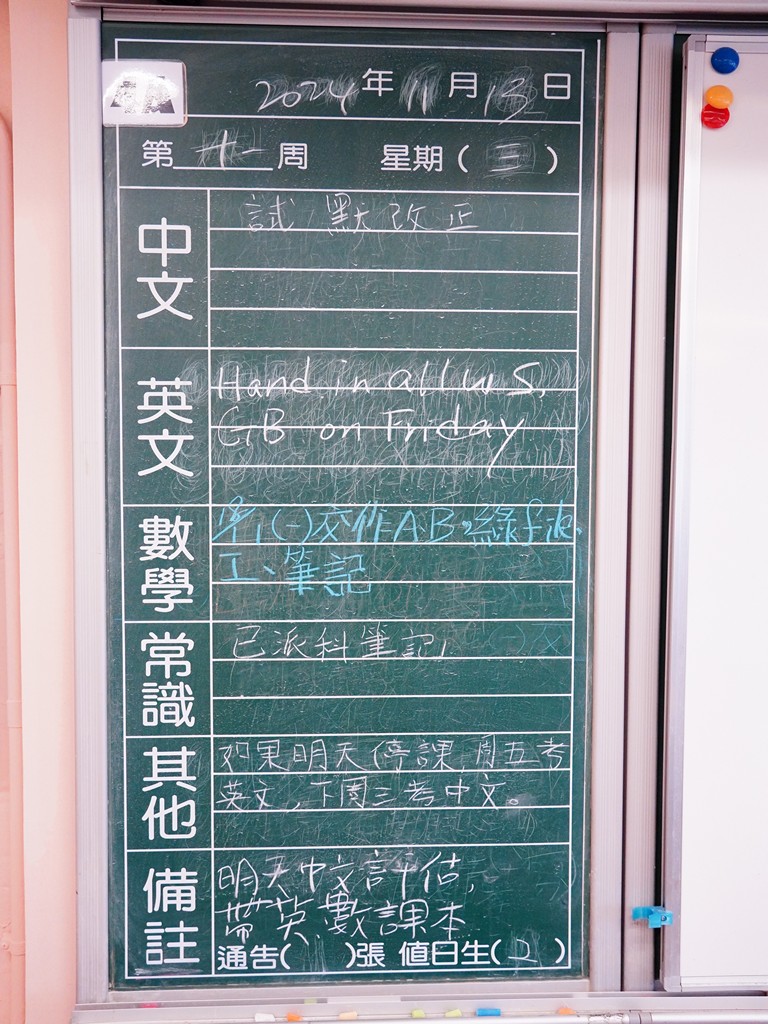 2024年11月13日
第十一周 星期(三)
中文
試默改正
英文
Hand in all ws,
GB on Friday
數學
(一)交作AB,綠file,
工、筆記
常識
已派科筆記
其他
如果明天停課,周五考
英文,下周三考中文。
備註
明天中文評估,
帶英數課本
通告( )張 值日生(2)